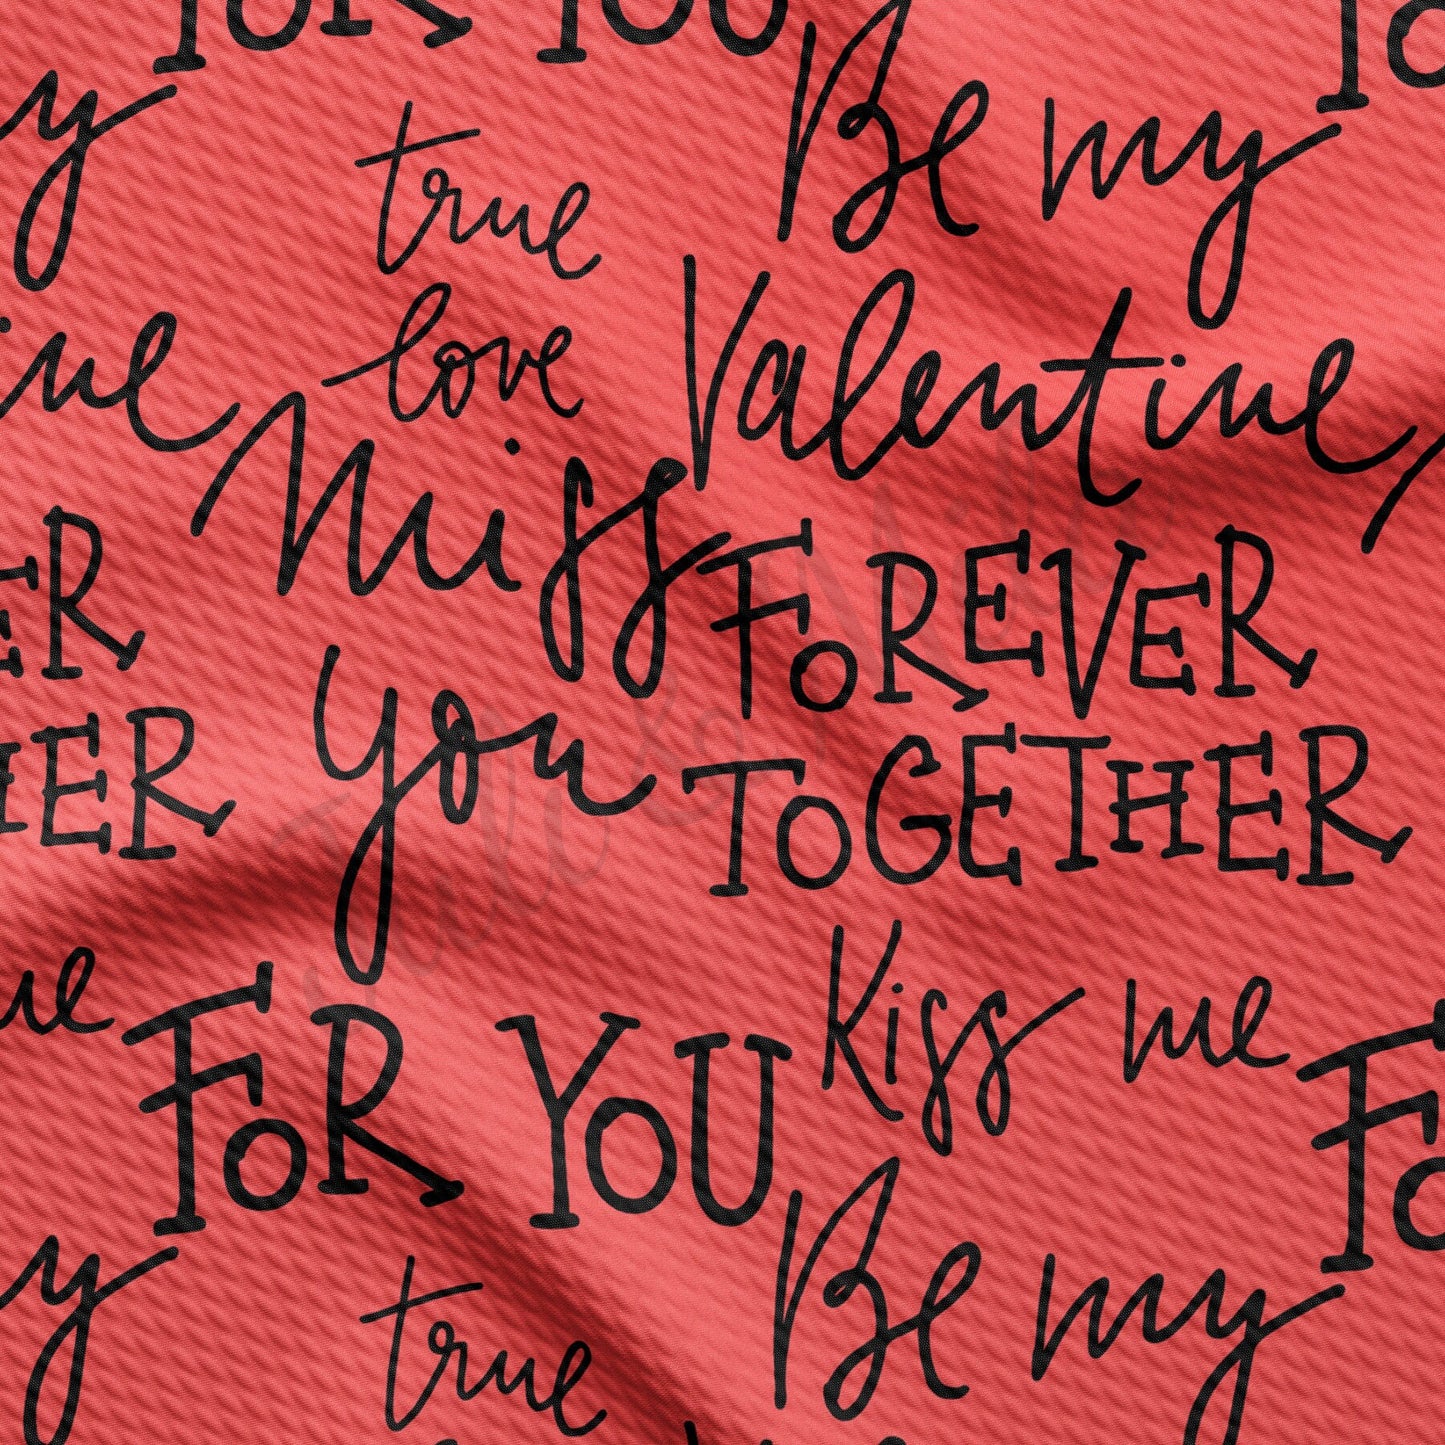 FOR YOU
Be my
true
love
Valentine,
Miss
you
FOREVER
TOGETHER
Kiss me
FOR YOU
Be my
true